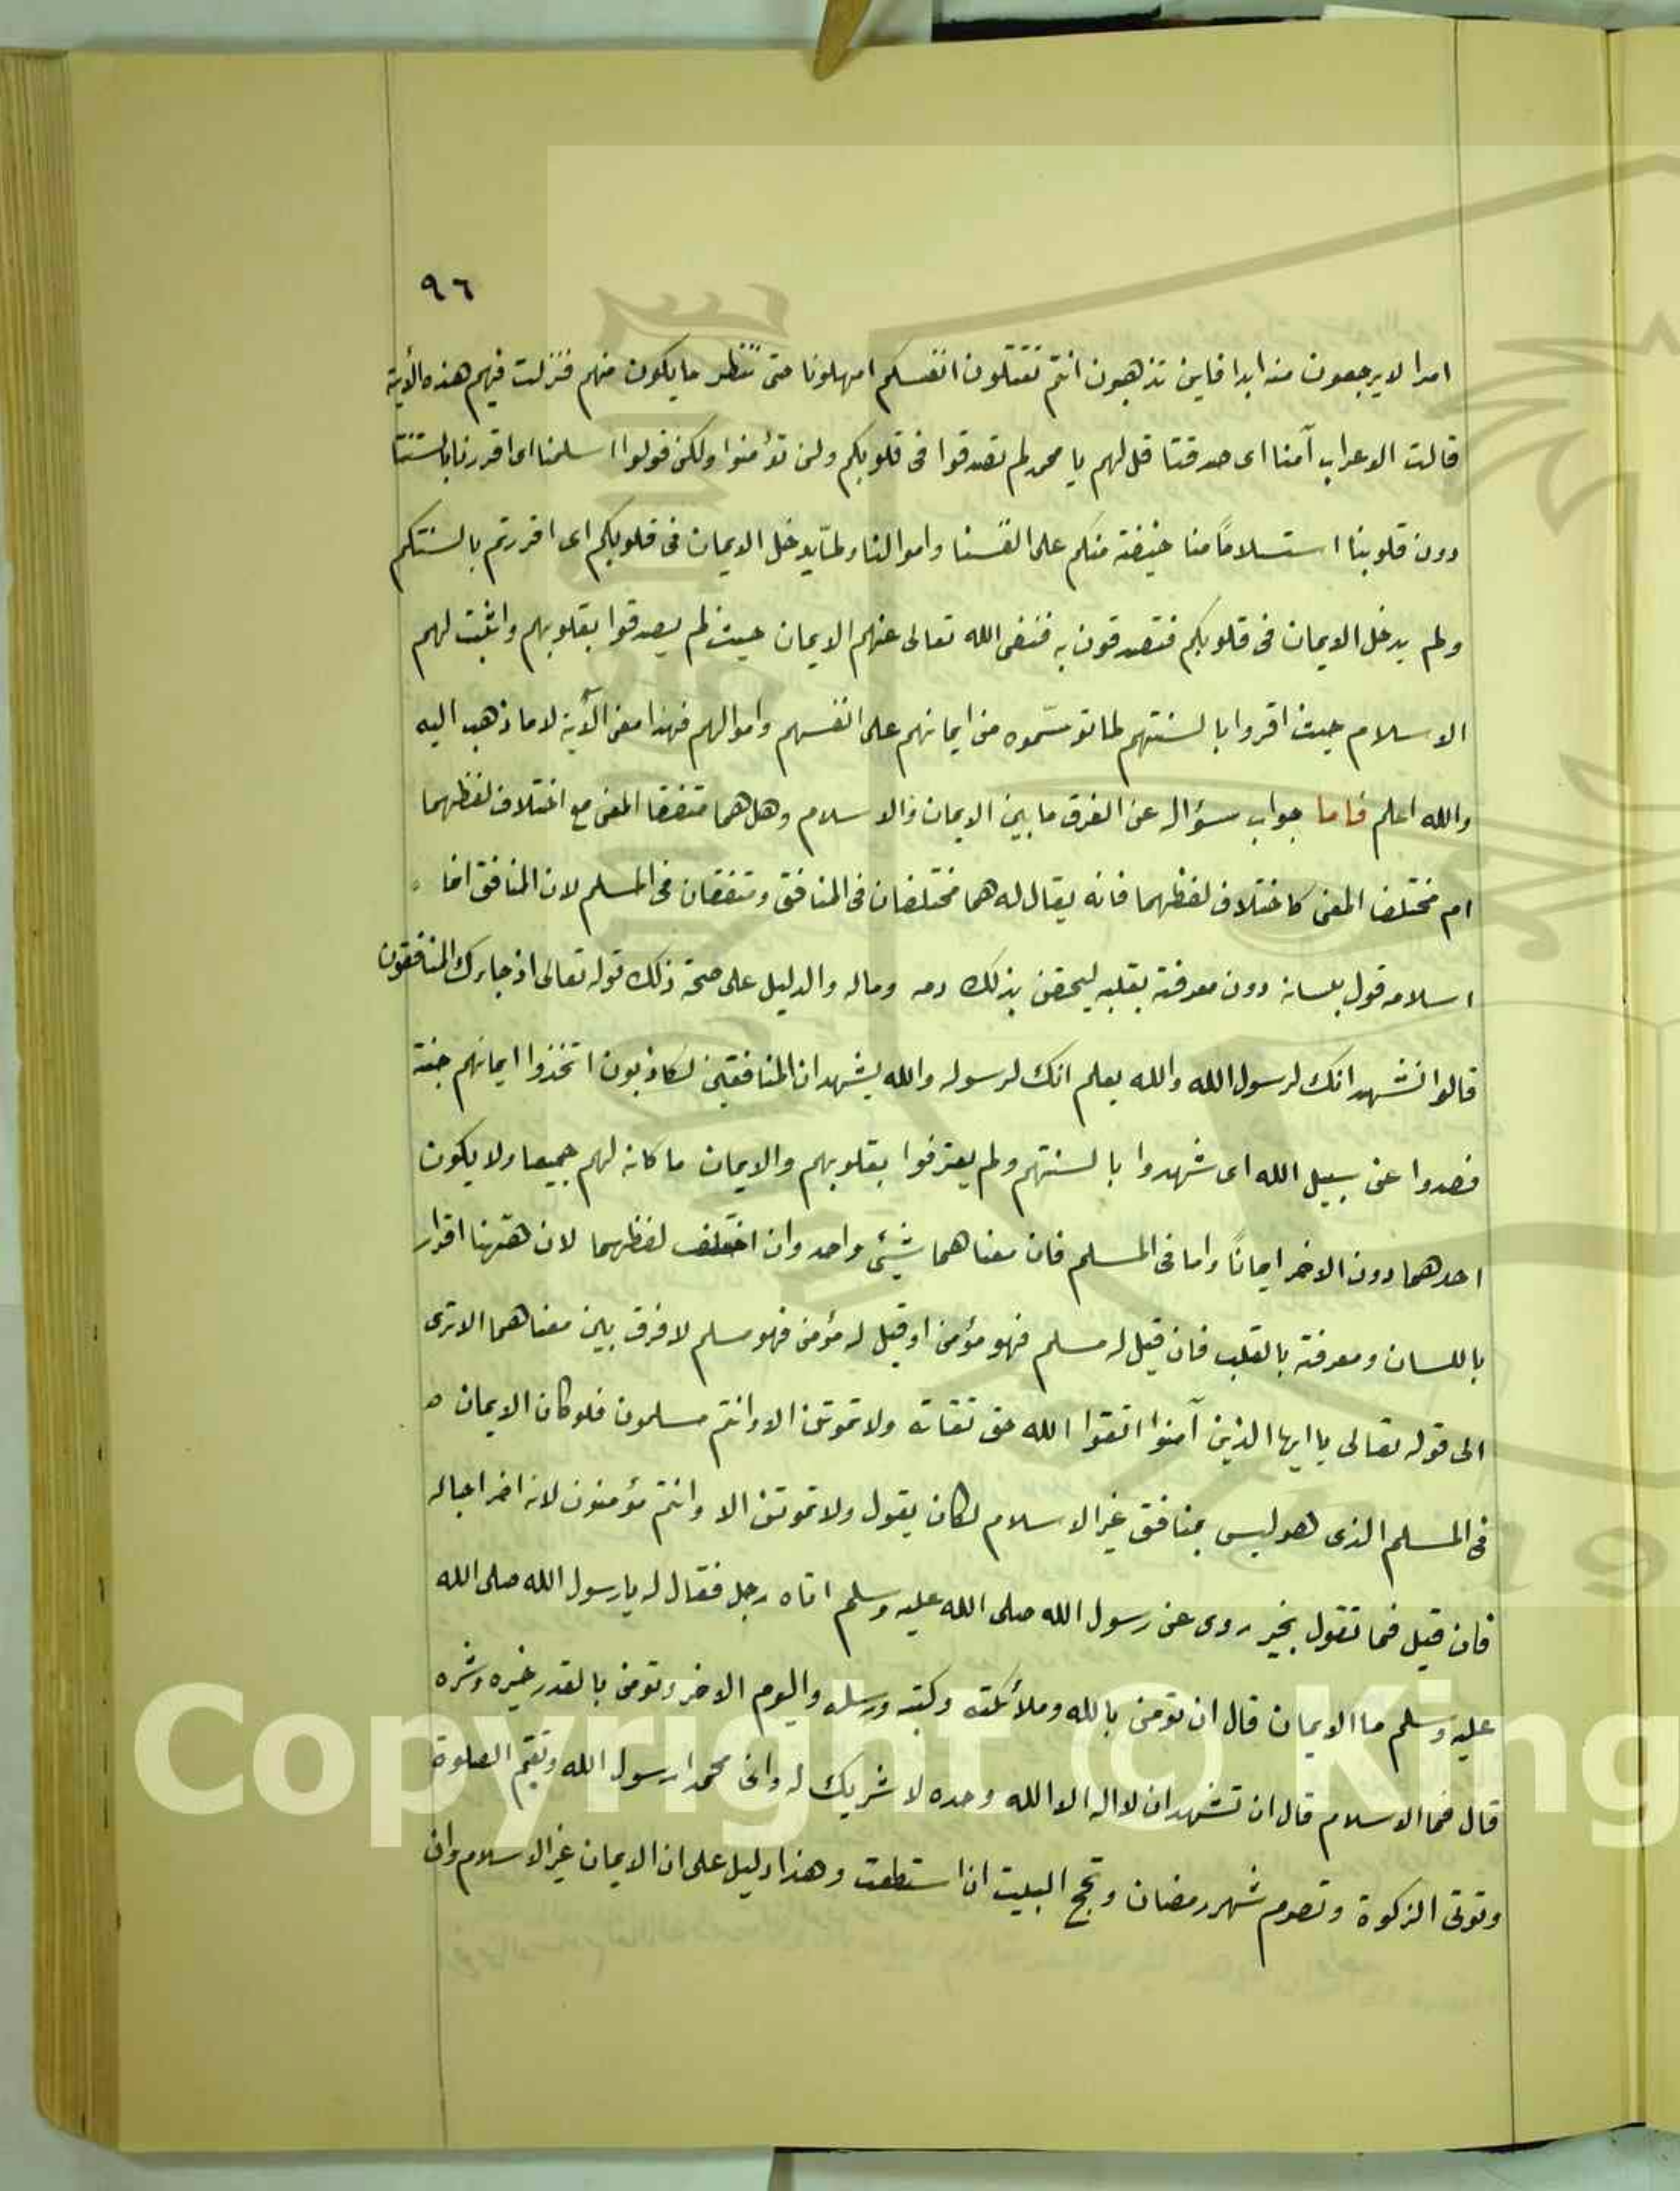 ٩٦
امرا لا يرجعون منه ابدا فاين تذهبون انتم تقتلون انفسكم امهلونا حتى ننظر ما يكون منهم فنزلت فيهم هذه الأية
قالت الاعراب آمنا اى صدقتا قل لهم يا محمد لم تصدقوا فى قلوبكم ولن تؤمنوا ولكن قولوا اسلمنا اى اقررنا بالسنتنا
دون قلوبنا استسلاماً منا خيفة منكم على انفسنا واموالنا ولمّا يدخل الايمان فى قلوبكم اى اقررتم بالسنتكم
ولم يدخل الايمان فى قلوبكم فتصدقون به فنفى الله تعالى عنهم الايمان حيث لم يصدقوا بقلوبهم واثبت لهم
الاسلام حيث اقروا بالسنتهم لما توسّموه من ايمانهم على انفسهم واموالهم فهذا معنى الآية لا ما ذهب اليه
والله اعلم فاما جواب سؤاله عن الفرق ما بين الايمان والاسلام وهل هما متفقا المعنى مع اختلاف لفظهما
ام مختلفا المعنى كاختلاف لفظهما فانه يقال له هما مختلفان فى المنافق ومتفقان فى المسلم لان المنافق انما
اسلامه قول بلسانه دون معرفة بقلبه ليحقن بذلك دمه وماله والدليل على صحة ذلك قوله تعالى اذ جاءك المنافقون
قالوا نشهد انك لرسول الله والله يعلم انك لرسوله والله يشهد ان المنافقين لكاذبون اتخذوا ايمانهم جنة
فصدوا عن سبيل الله اى شهدوا بالسنتهم ولم يعترفوا بقلوبهم والايمان ما كانه لهم جميعا ولا يكون
احدهما دون الاخر ايماناً واما فى المسلم فان معناهما شيئ واحد وان اختلف لفظهما لان ههنا اقرار
باللسان ومعرفة بالقلب فان قيل له مسلم فهو مؤمن او قيل له مؤمن فهو مسلم لا فرق بين معناهما الا ترى
الى قوله تعالى يا ايها الذين آمنوا اتقوا الله حق تقاته ولا تموتن الا وانتم مسلمون فلو كان الايمان
فى المسلم الذى هو ليس بمنافق غير الاسلام لكان يقول ولا تموتن الا وانتم مؤمنون لانه اخر اجاله
فان قيل فما تقول بخبر روى عن رسول الله صلى الله عليه وسلم اتاه رجل فقال له يا رسول الله صلى الله
عليه وسلم ما الايمان قال ان تومن بالله وملائكته وكتبه ورسله واليوم الاخر وتومن بالقدر خيره وشره
قال فما الاسلام قال ان تشهد ان لا اله الا الله وحده لا شريك له وان محمدا رسول الله وتقيم الصلوة
وتوتى الزكوة وتصوم شهر رمضان وتحج البيت ان استطعت وهذا دليل على ان الايمان غير الاسلام وان
Copyright © King